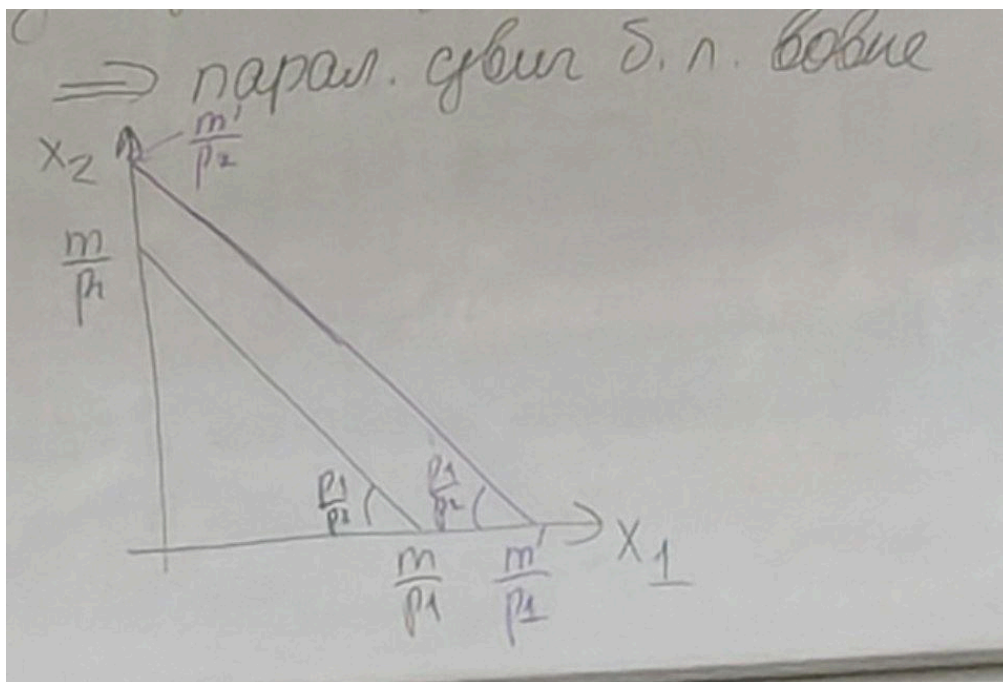 ⇒ парал. сдвиг б. л. вовне
m'/p2
x2
m/p2
p1/p2 p1/p2
x1
m/p1 m'/p1